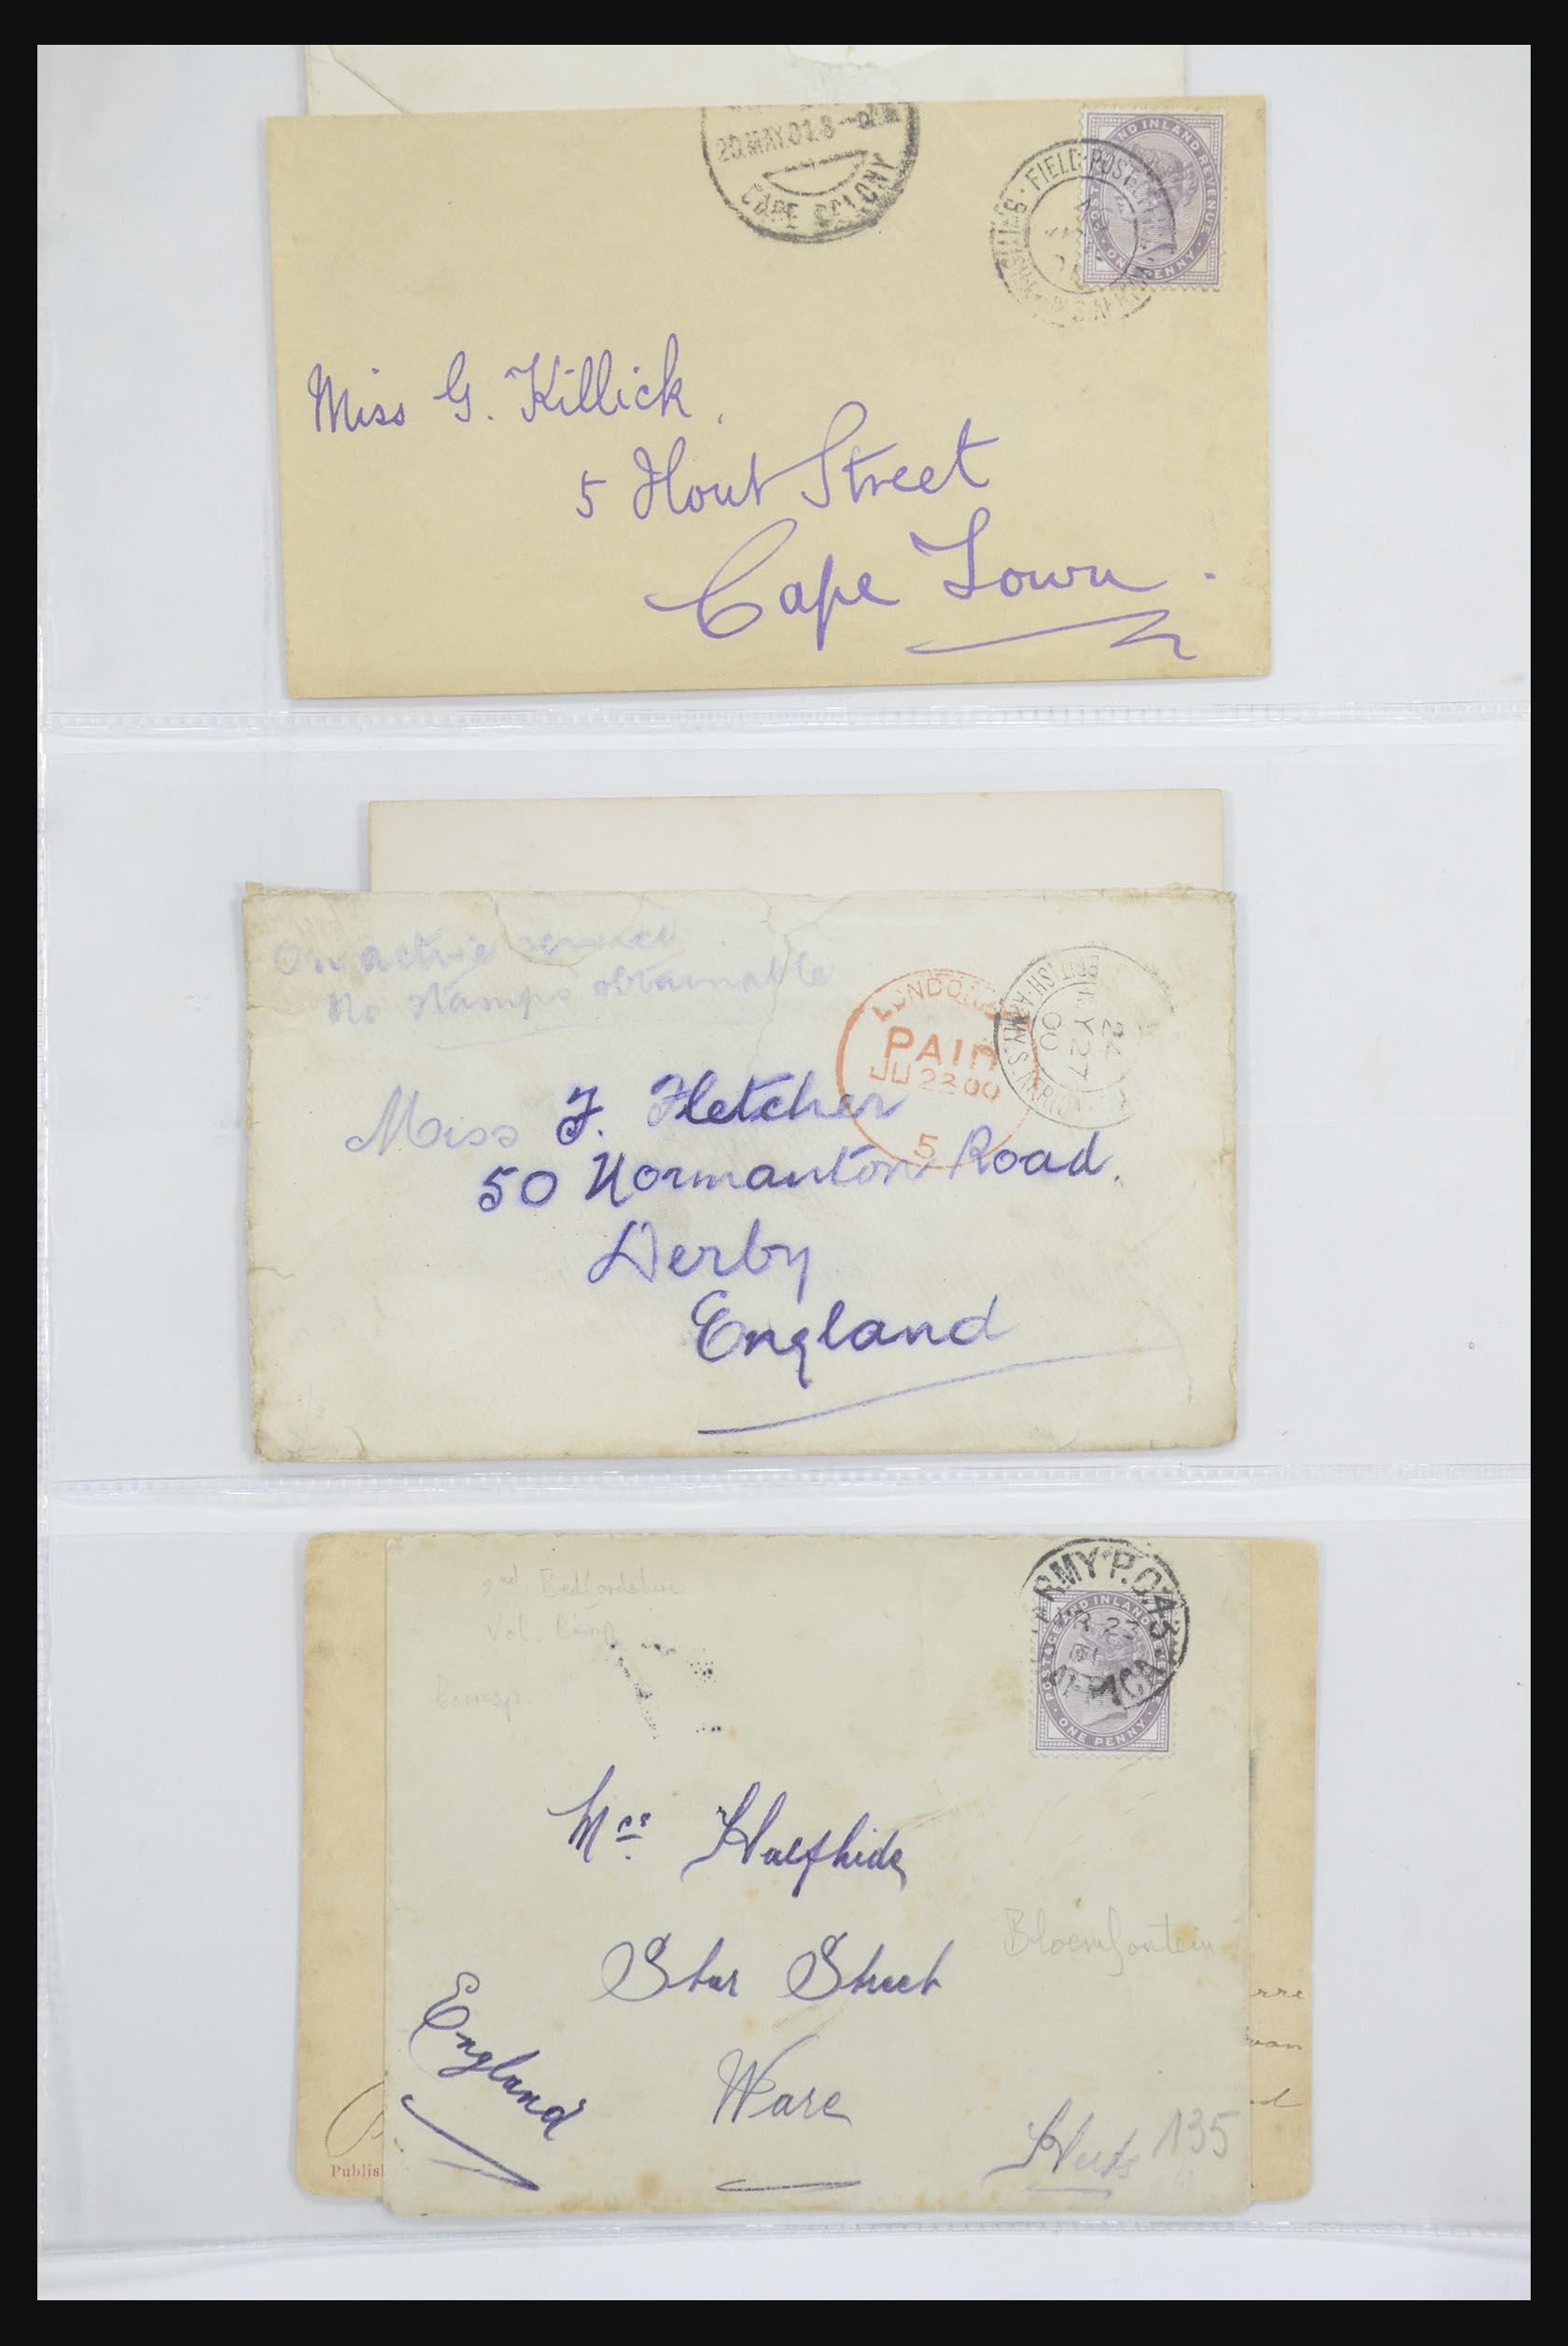 20.MAY.01.8-
CAPE COLONY
FIELD POST
ND INLAND REVENUE
ONE PENNY
Miss G. Killick.
5 Hout Street
Cape Town.
On active service
No stamps obtainable
LONDON
PAID
JU 23 00
5
BRITISH ARMY S. AFRICA
24
MY 27
00
Miss F. Fletcher
50 Normanton Road.
Derby
England
2nd Bedfordshire
Vol. Comp
Corresp.
ARMY P.O. 43
PR 23
01
AFRICA
POSTAGE AND INLAND REVENUE
ONE PENNY
Mrs Halfhide
Star Street
Bloemfontein
England
Ware
Herts 135
rre
van
d
Publis